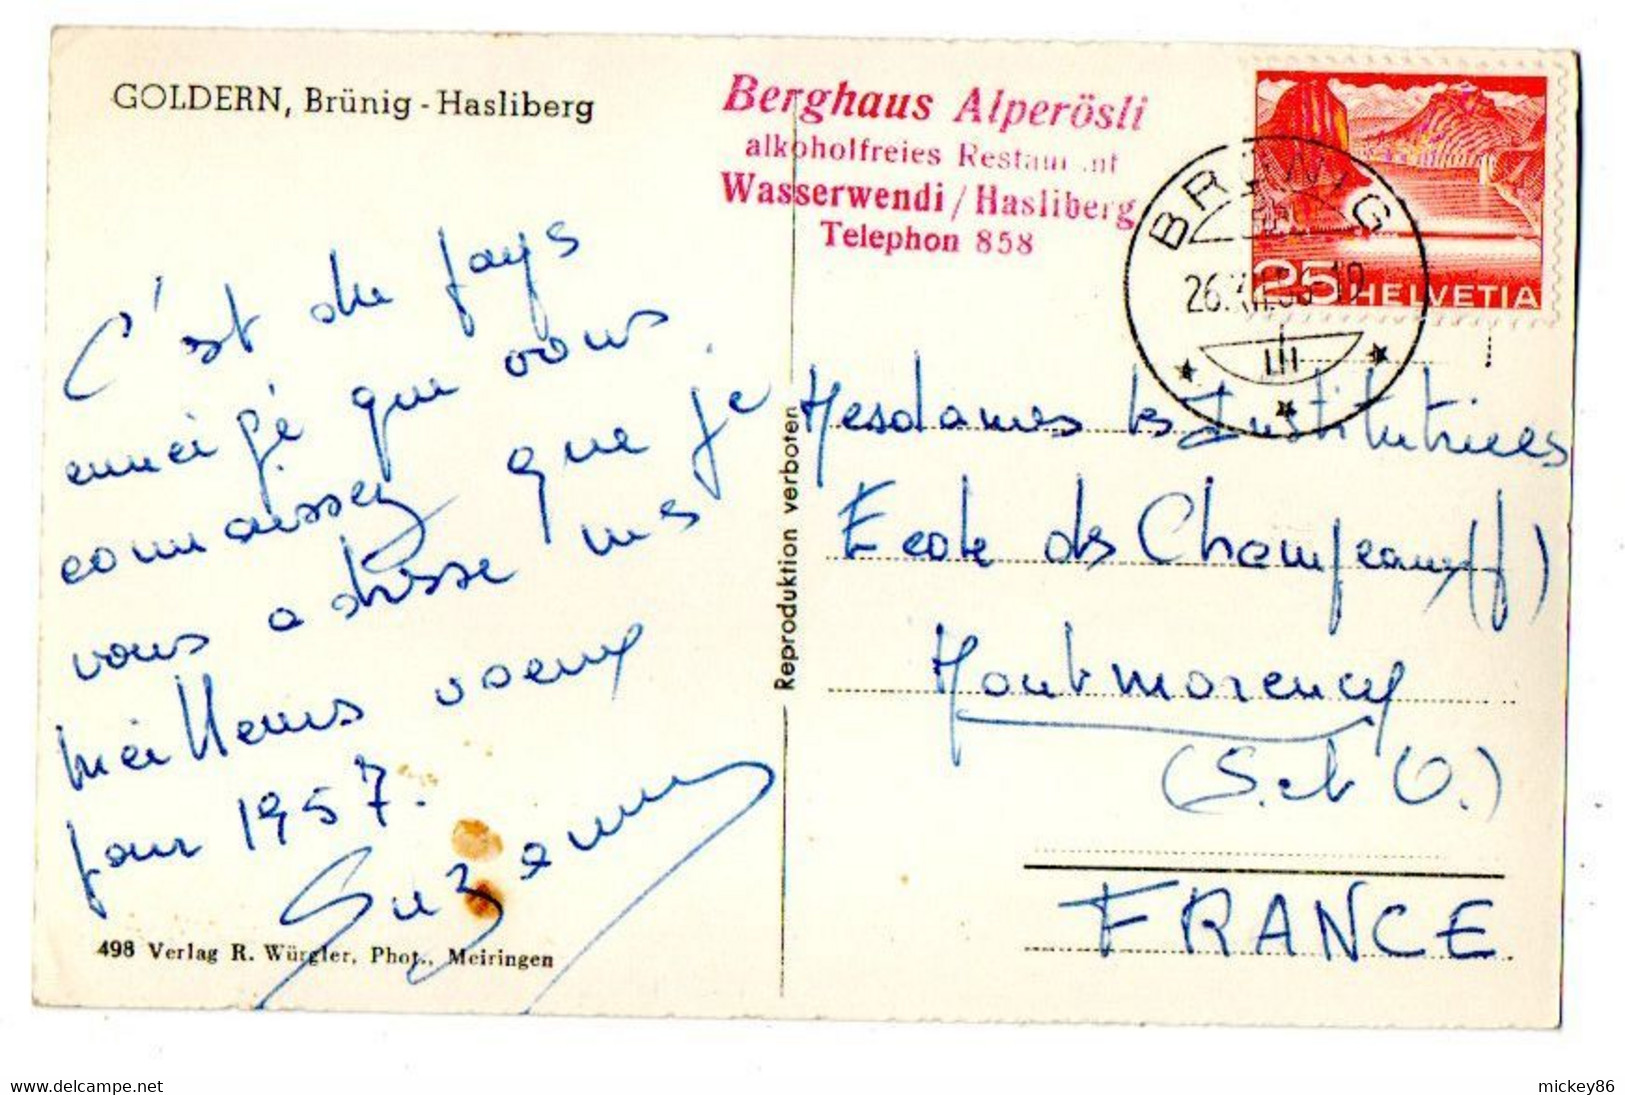 GOLDERN, Brünig - Hasliberg
Berghaus Alperösli
alkoholfreies Restaurant
Wasserwendi / Hasliberg
Telephon 858
BRÜNIG
26.XII.56-19
25 HELVETIA
C'est du pays
enneigé que vous
connaissez que je
vous adresse mes
meilleurs voeux
pour 1957.
Suzanne
Reproduktion verboten
Mesdames les Institutrices
Ecole des Champeaux (f)
Montmorency
(S. et O.)
FRANCE
498 Verlag R. Würgler, Phot., Meiringen
www.delcampe.net
mickey86